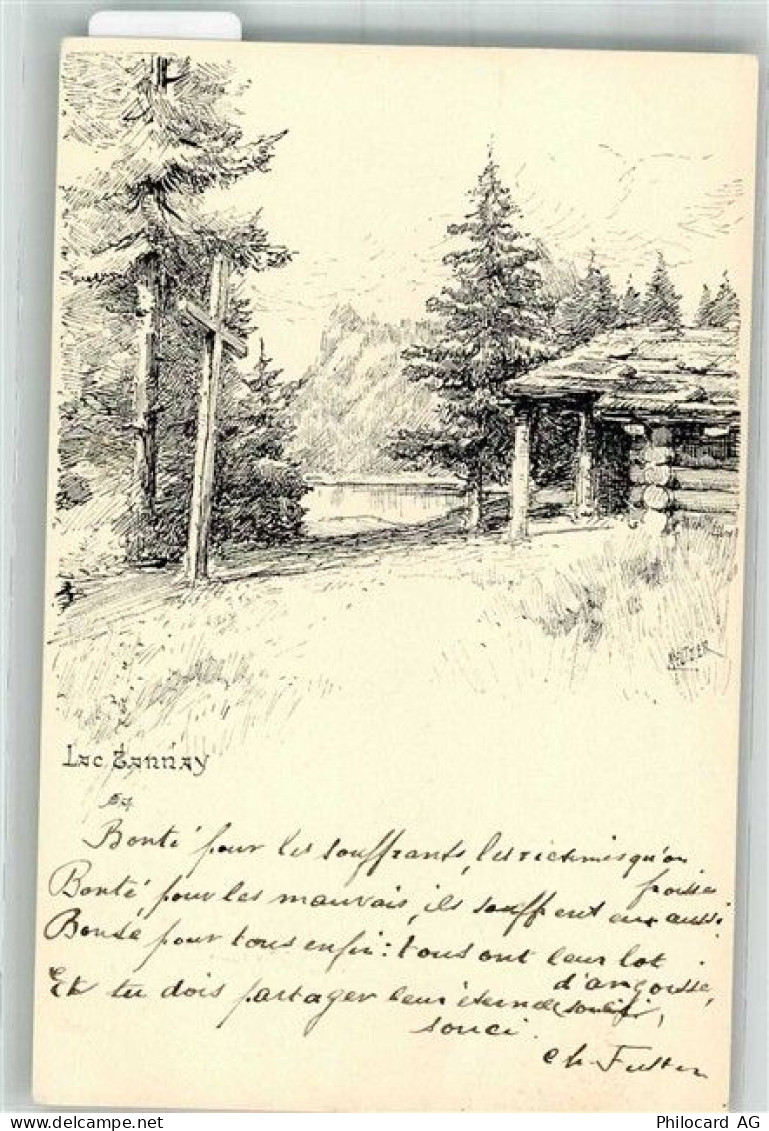 MELTZER
Lac Tannay
Bonté pour les souffrants, les victimes qu'on
froisse
Bonté pour les mauvais, ils souffrent eux aussi.
Bonté pour tous enfin: tous ont leur lot
d'angoisse,
Et tu dois partager leur éternel souci,
souci.
Ch. Fuster
Philocard AG